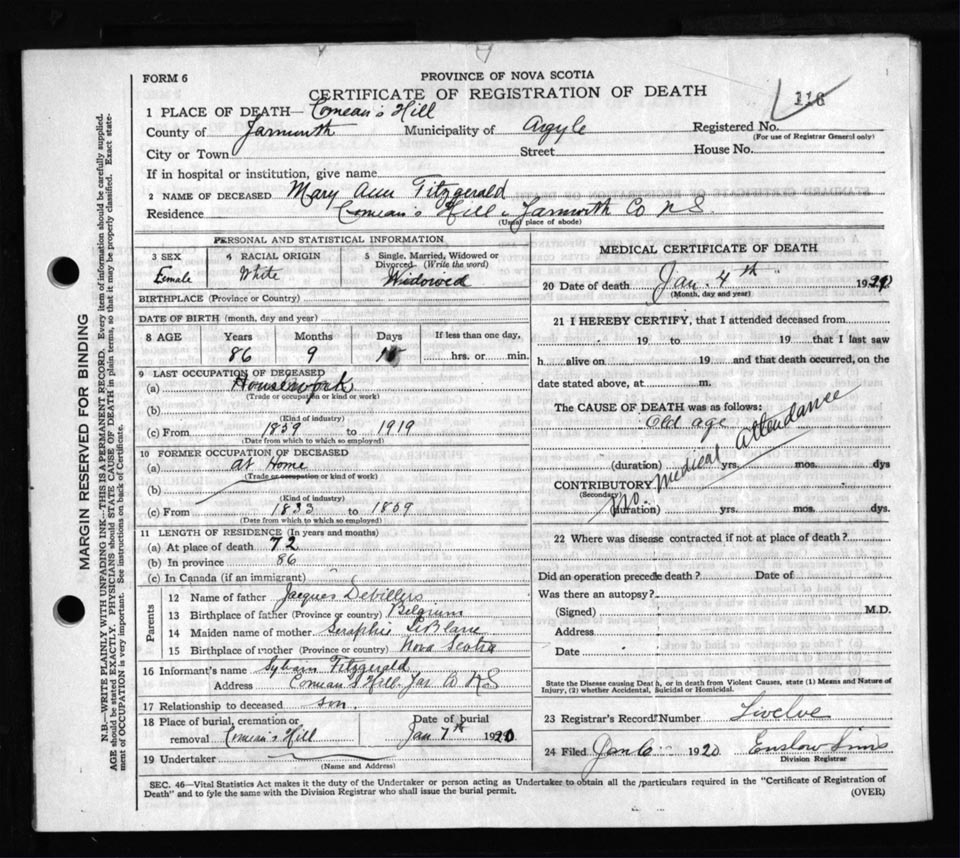 FORM 6
PROVINCE OF NOVA SCOTIA
CERTIFICATE OF REGISTRATION OF DEATH
118
1 PLACE OF DEATH— Comeau's Hill
County of Yarmouth Municipality of Argyle Registered No.
(For use of Registrar General only)
City or Town Street House No.
If in hospital or institution, give name
2 NAME OF DECEASED Mary Ann Fitzgerald
Residence Comeau's Hill Yarmouth Co N S.
(Usual place of abode)
PERSONAL AND STATISTICAL INFORMATION
3 SEX 4 RACIAL ORIGIN 5 Single, Married, Widowed or
Divorced (Write the word)
Female White Widowed
BIRTHPLACE (Province or Country)
DATE OF BIRTH (month, day and year)
8 AGE Years Months Days If less than one day,
86 9 hrs. or min.
9 LAST OCCUPATION OF DECEASED
(a) Housework
(Trade or occupation or kind of work)
(b)
(Kind of industry)
(c) From 1859 to 1919
(Date from which to which so employed)
10 FORMER OCCUPATION OF DECEASED
(a) at Home
(Trade or occupation or kind of work)
(b)
(Kind of industry)
(c) From 1833 to 1859
(Date from which to which so employed)
11 LENGTH OF RESIDENCE (In years and months)
(a) At place of death 72
(b) In province 86
(c) In Canada (if an immigrant)
Parents
12 Name of father Jacques Debillers
13 Birthplace of father (Province or country) Belgium
14 Maiden name of mother Seraphie LeBlanc
15 Birthplace of mother (Province or country) Nova Scotia
16 Informant's name Sylvain Fitzgerald
Address Comeau's Hill Yar Co N S
17 Relationship to deceased son.
18 Place of burial, cremation or Date of burial
removal Comeau's Hill Jan 7th 1920
19 Undertaker
(Name and Address)
MEDICAL CERTIFICATE OF DEATH
20 Date of death Jan. 4th 1920
(Month, day and year)
21 I HEREBY CERTIFY, that I attended deceased from
19 to 19 that I last saw
h alive on 19 and that death occurred, on the
date stated above, at m.
The CAUSE OF DEATH was as follows:
Old age
(duration) yrs. mos. dys
CONTRIBUTORY
(Secondary)
(duration) yrs. mos. dys.
No. Medical Attendance
22 Where was disease contracted if not at place of death?
Did an operation precede death? Date of
Was there an autopsy?
(Signed) M.D.
Address
Date
State the Disease causing Death, or in death from Violent Causes, state (1) Means and Nature of
Injury, (2) whether Accidental, Suicidal or Homicidal.
23 Registrar's Record Number Twelve
24 Filed Jan 6 1920 Enslow Sims
Division Registrar
SEC. 46—Vital Statistics Act makes it the duty of the Undertaker or person acting as Undertaker to obtain all the particulars required in the "Certificate of Registration of
Death" and to fyle the same with the Division Registrar who shall issue the burial permit.
(OVER)
MARGIN RESERVED FOR BINDING
N.B.—WRITE PLAINLY WITH UNFADING INK—THIS IS A PERMANENT RECORD. Every item of information should be carefully supplied.
AGE should be stated EXACTLY. PHYSICIANS should STATE CAUSE OF DEATH in plain terms, so that it may be properly classified. Exact state-
ment of OCCUPATION is very important. See instructions on back of Certificate.